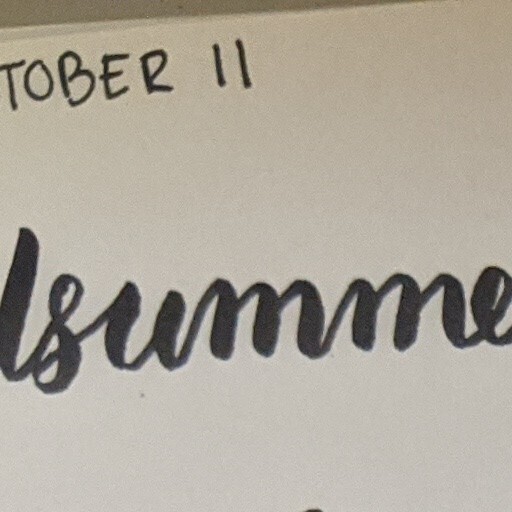 TOBER 11
dsumme